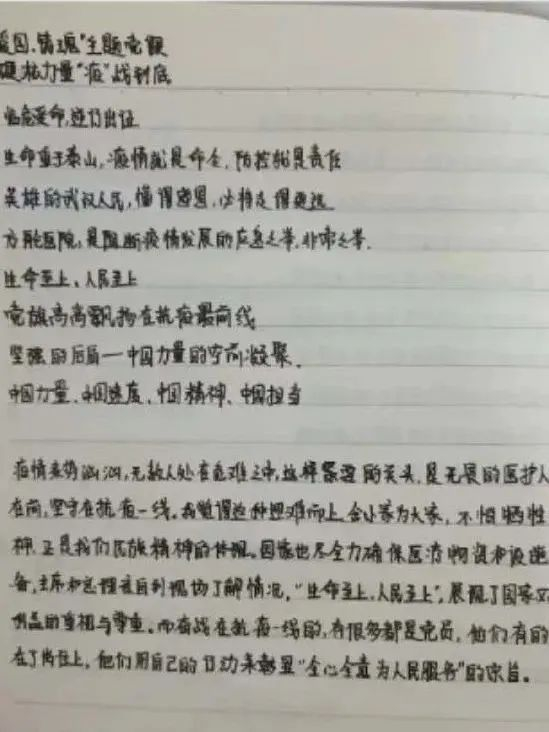 爱国、铸魂"主题党课
凝聚力量"疫"战到底
临危受命,逆行出征
生命重于泰山,疫情就是命令,防控就是责任
英雄的武汉人民,懂得感恩,必将走得更远
方舱医院,是阻断疫情发展的应急之举,非常之举.
生命至上、人民至上
党旗高高飘扬在抗疫最前线
坚强的后盾一中国力量的空前凝聚.
中国力量、中国速度、中国精神、中国担当
疫情来势汹汹,无数人处在危难之中,这样紧要的关头,是无畏的医护人
在前,坚守在抗疫一线。我觉得这种迎难而上,舍小家为大家,不怕牺牲
神,正是我们民族精神的体现。国家也尽全力确保医疗物资和设施
备,主席和总理亲自到现场了解情况,"生命至上,人民至上",展现了国家对
的重视与尊重。而奋战在抗疫一线的,有很多都是党员,他们有的
在了岗位上,他们用自己的行动来彰显"全心全意为人民服务"的宗旨。